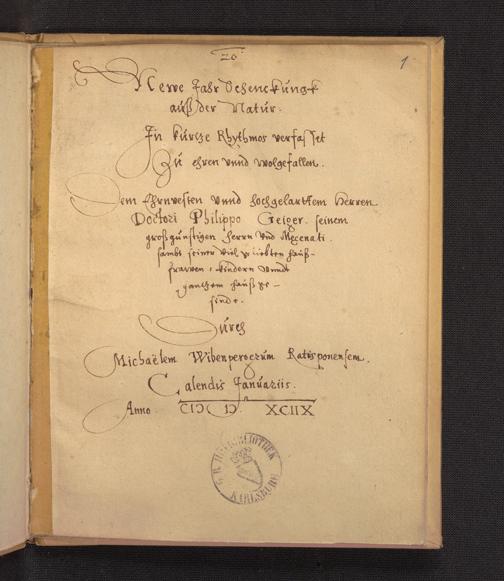 26
1
Newe Jahr Schenckungk
auß der Natur.
In kurtze Rhythmos verfasset
Zu ehren vnnd wolgefallen.
Dem Ehrnvesten vnnd hochgelarttem Herren
Doctori Philippo Geiger. seinem
großgünstigen Herrn vnd Mecenati.
sambt seiner viel geliebten hauß-
frawen, kindern vnnd
gantzem hauß ge-
sinde.
Durch
Michaëlem Wibenperogerum Ratisponensem.
Calendis Januariis.
Anno CIↃ IↃ XCIIX
G. B. HOFBIBLIOTHEK
KARLSBURG